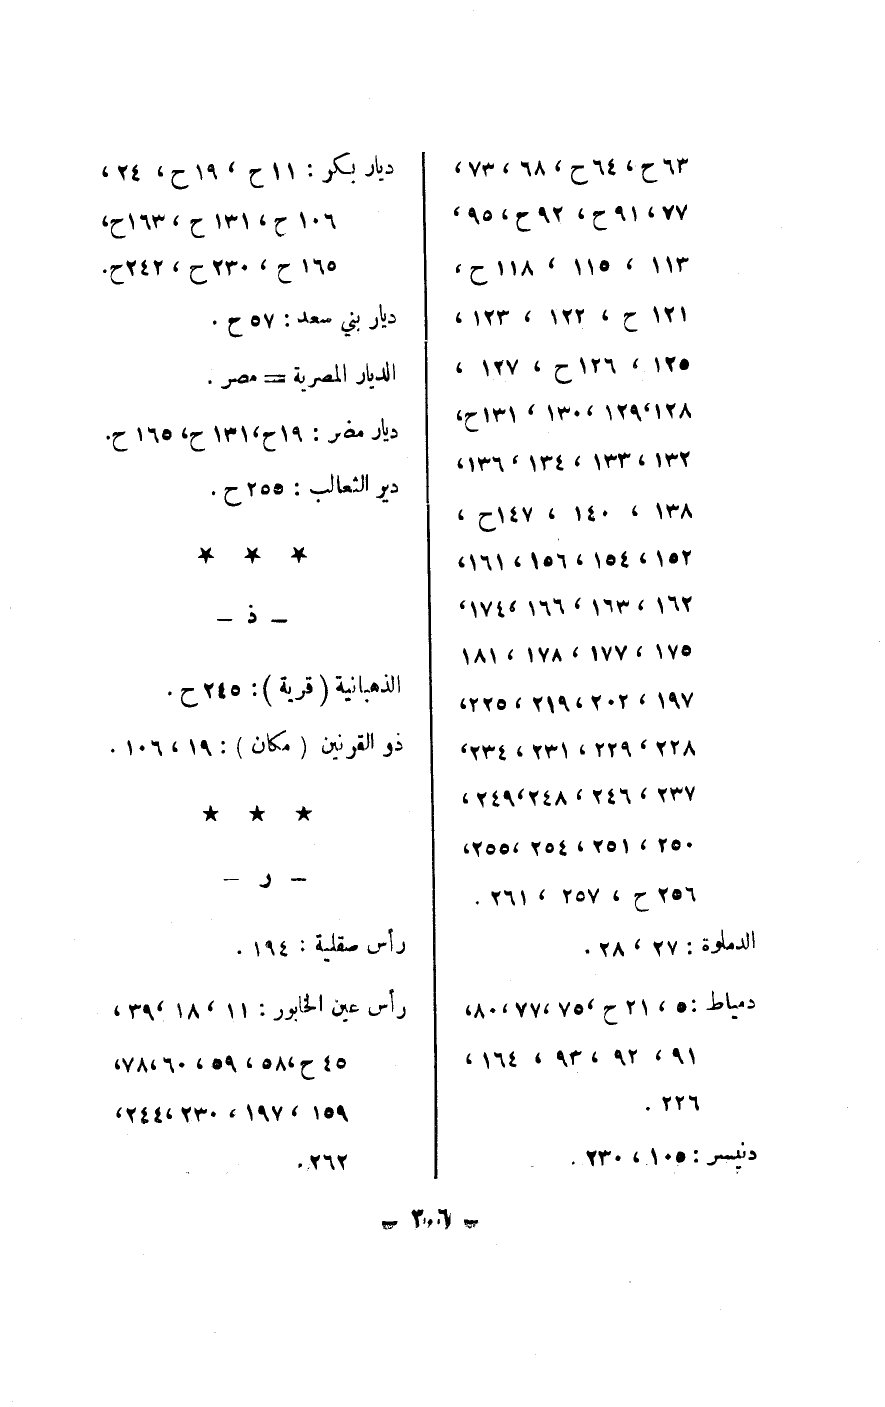 ٦٣ ح ، ٦٤ ح ، ٦٨ ، ٧٣ ،
٧٧ ، ٩١ ح ، ٩٢ ح ، ٩٥ ،
١١٣ ، ١١٥ ، ١١٨ ح ،
١٢١ ح ، ١٢٢ ، ١٢٣ ،
١٢٥ ، ١٢٦ ح ، ١٢٧ ،
١٢٨ ، ١٢٩ ، ١٣٠ ، ١٣١ ح ،
١٣٢ ، ١٣٣ ، ١٣٤ ، ١٣٦ ،
١٣٨ ، ١٤٠ ، ١٤٧ ح ،
١٥٢ ، ١٥٤ ، ١٥٦ ، ١٦١ ،
١٦٢ ، ١٦٣ ، ١٦٦ ، ١٧٤ ،
١٧٥ ، ١٧٧ ، ١٧٨ ، ١٨١
١٩٧ ، ٢٠٢ ، ٢١٩ ، ٢٢٥ ،
٢٢٨ ، ٢٢٩ ، ٢٣١ ، ٢٣٤ ،
٢٣٧ ، ٢٤٦ ، ٢٤٨ ، ٢٤٩ ،
٢٥٠ ، ٢٥١ ، ٢٥٤ ، ٢٥٥ ،
٢٥٦ ح ، ٢٥٧ ، ٢٦١ .
الدملوة : ٢٧ ، ٢٨ .
دمياط : ٥ ، ٢١ ح ، ٧٥ ، ٧٧ ، ٨٠ ،
٩١ ، ٩٢ ، ٩٣ ، ١٦٤ ،
٢٢٦ .
دنيسر : ١٠٥ ، ٢٣٠ .
ديار بكر : ١١ ح ، ١٩ ح ، ٢٤ ،
١٠٦ ح ، ١٣١ ح ، ١٦٣ ح ،
١٦٥ ح ، ٢٣٠ ح ، ٢٤٢ ح .
ديار بني سعد : ٥٧ ح .
الديار المصرية = مصر .
ديار مضر : ١٩ ح ، ١٣١ ح ، ١٦٥ ح .
دير الثعالب : ٢٥٥ ح .
★ ★ ★
– ذ –
الذهبانية ( قرية ) : ٢٤٥ ح .
ذو القرنين ( مكان ) : ١٩ ، ١٠٦ .
★ ★ ★
– ر –
رأس صقلية : ١٩٤ .
رأس عين الخابور : ١١ ، ١٨ ، ٣٩ ،
٤٥ ح ، ٥٨ ، ٥٩ ، ٦٠ ، ٧٨ ،
١٥٩ ، ١٩٧ ، ٢٣٠ ، ٢٤٤ ،
٢٦٢ .
– ٣٠٦ –